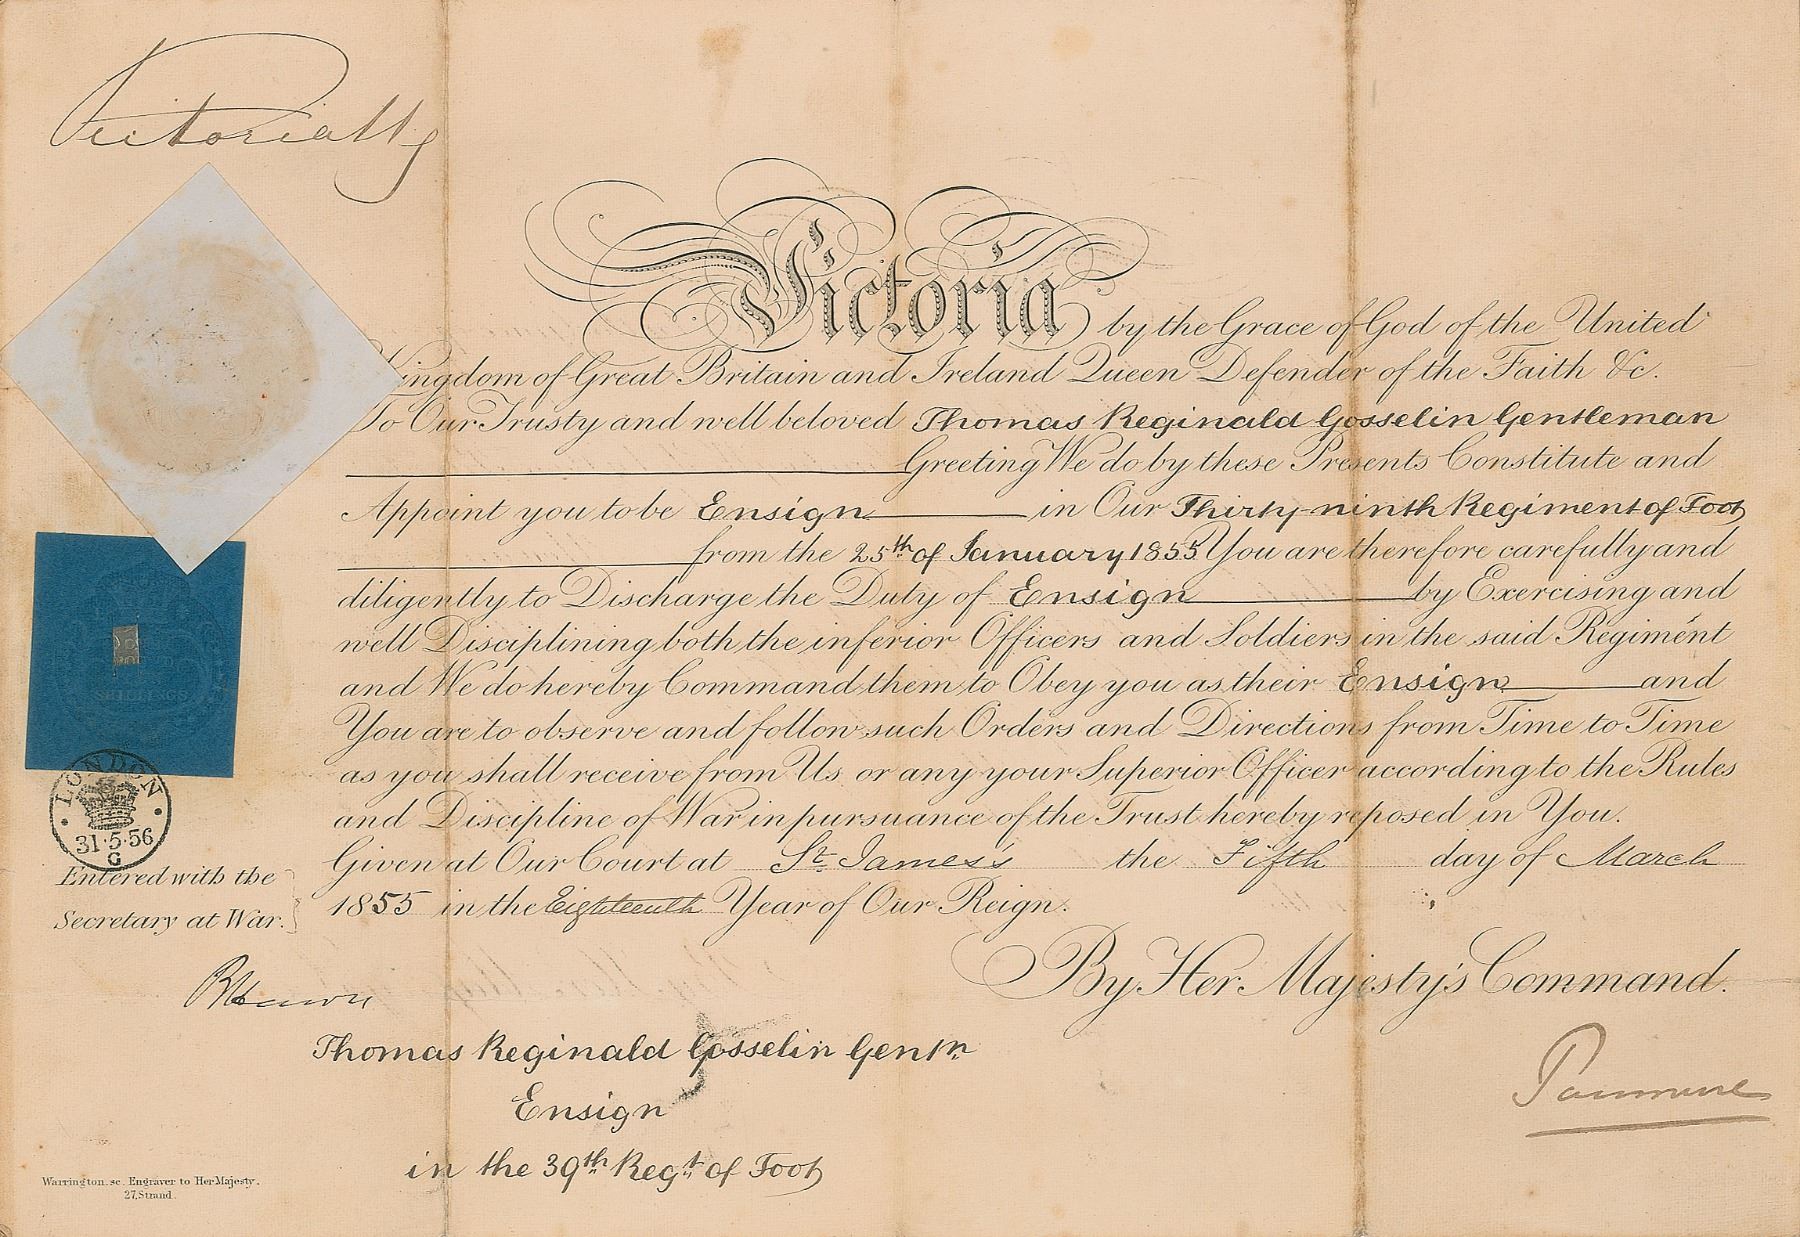 Victoria R
Victoria by the Grace of God of the United
Kingdom of Great Britain and Ireland Queen Defender of the Faith &c.
To Our Trusty and well beloved Thomas Reginald Gosselin Gentleman
Greeting We do by these Presents Constitute and
Appoint you to be Ensign in Our Thirty-ninth Regiment of Foot
from the 25th of January 1855 You are therefore carefully and
diligently to Discharge the Duty of Ensign by Exercising and
well Disciplining both the inferior Officers and Soldiers in the said Regiment
and We do hereby Command them to Obey you as their Ensign and
You are to observe and follow such Orders and Directions from Time to Time
as you shall receive from Us or any your Superior Officer according to the Rules
and Discipline of War in pursuance of the Trust hereby reposed in You.
Given at Our Court at St. James's the Fifth day of March
1855 in the Eighteenth Year of Our Reign.
By Her Majesty's Command.
Panmure
SHILLINGS
LONDON
31·5·56
G
Entered with the
Secretary at War.
Thomas Reginald Gosselin Gentn
Ensign
in the 39th Regt of Foot
Warrington. sc. Engraver to Her Majesty.
27, Strand.